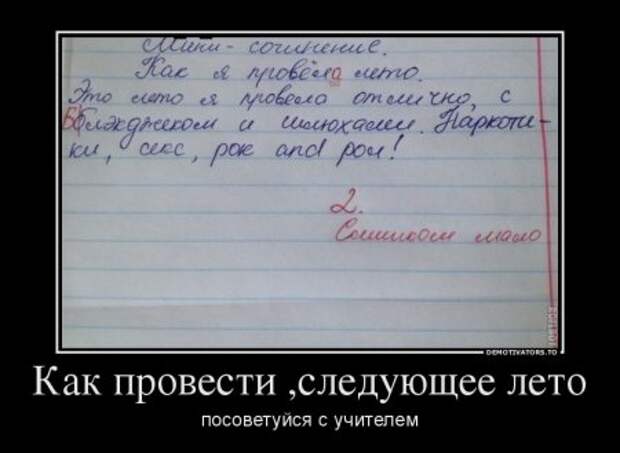 Мини - сочинение.
Как я провела лето.
Это лето я провела отлично, с
Блэкджеком и шлюхами. Наркоти-
ки, секс, рок and рол!
2.
Слишком мало
DEMOTIVATORS.TO
Как провести ,следующее лето
посоветуйся с учителем